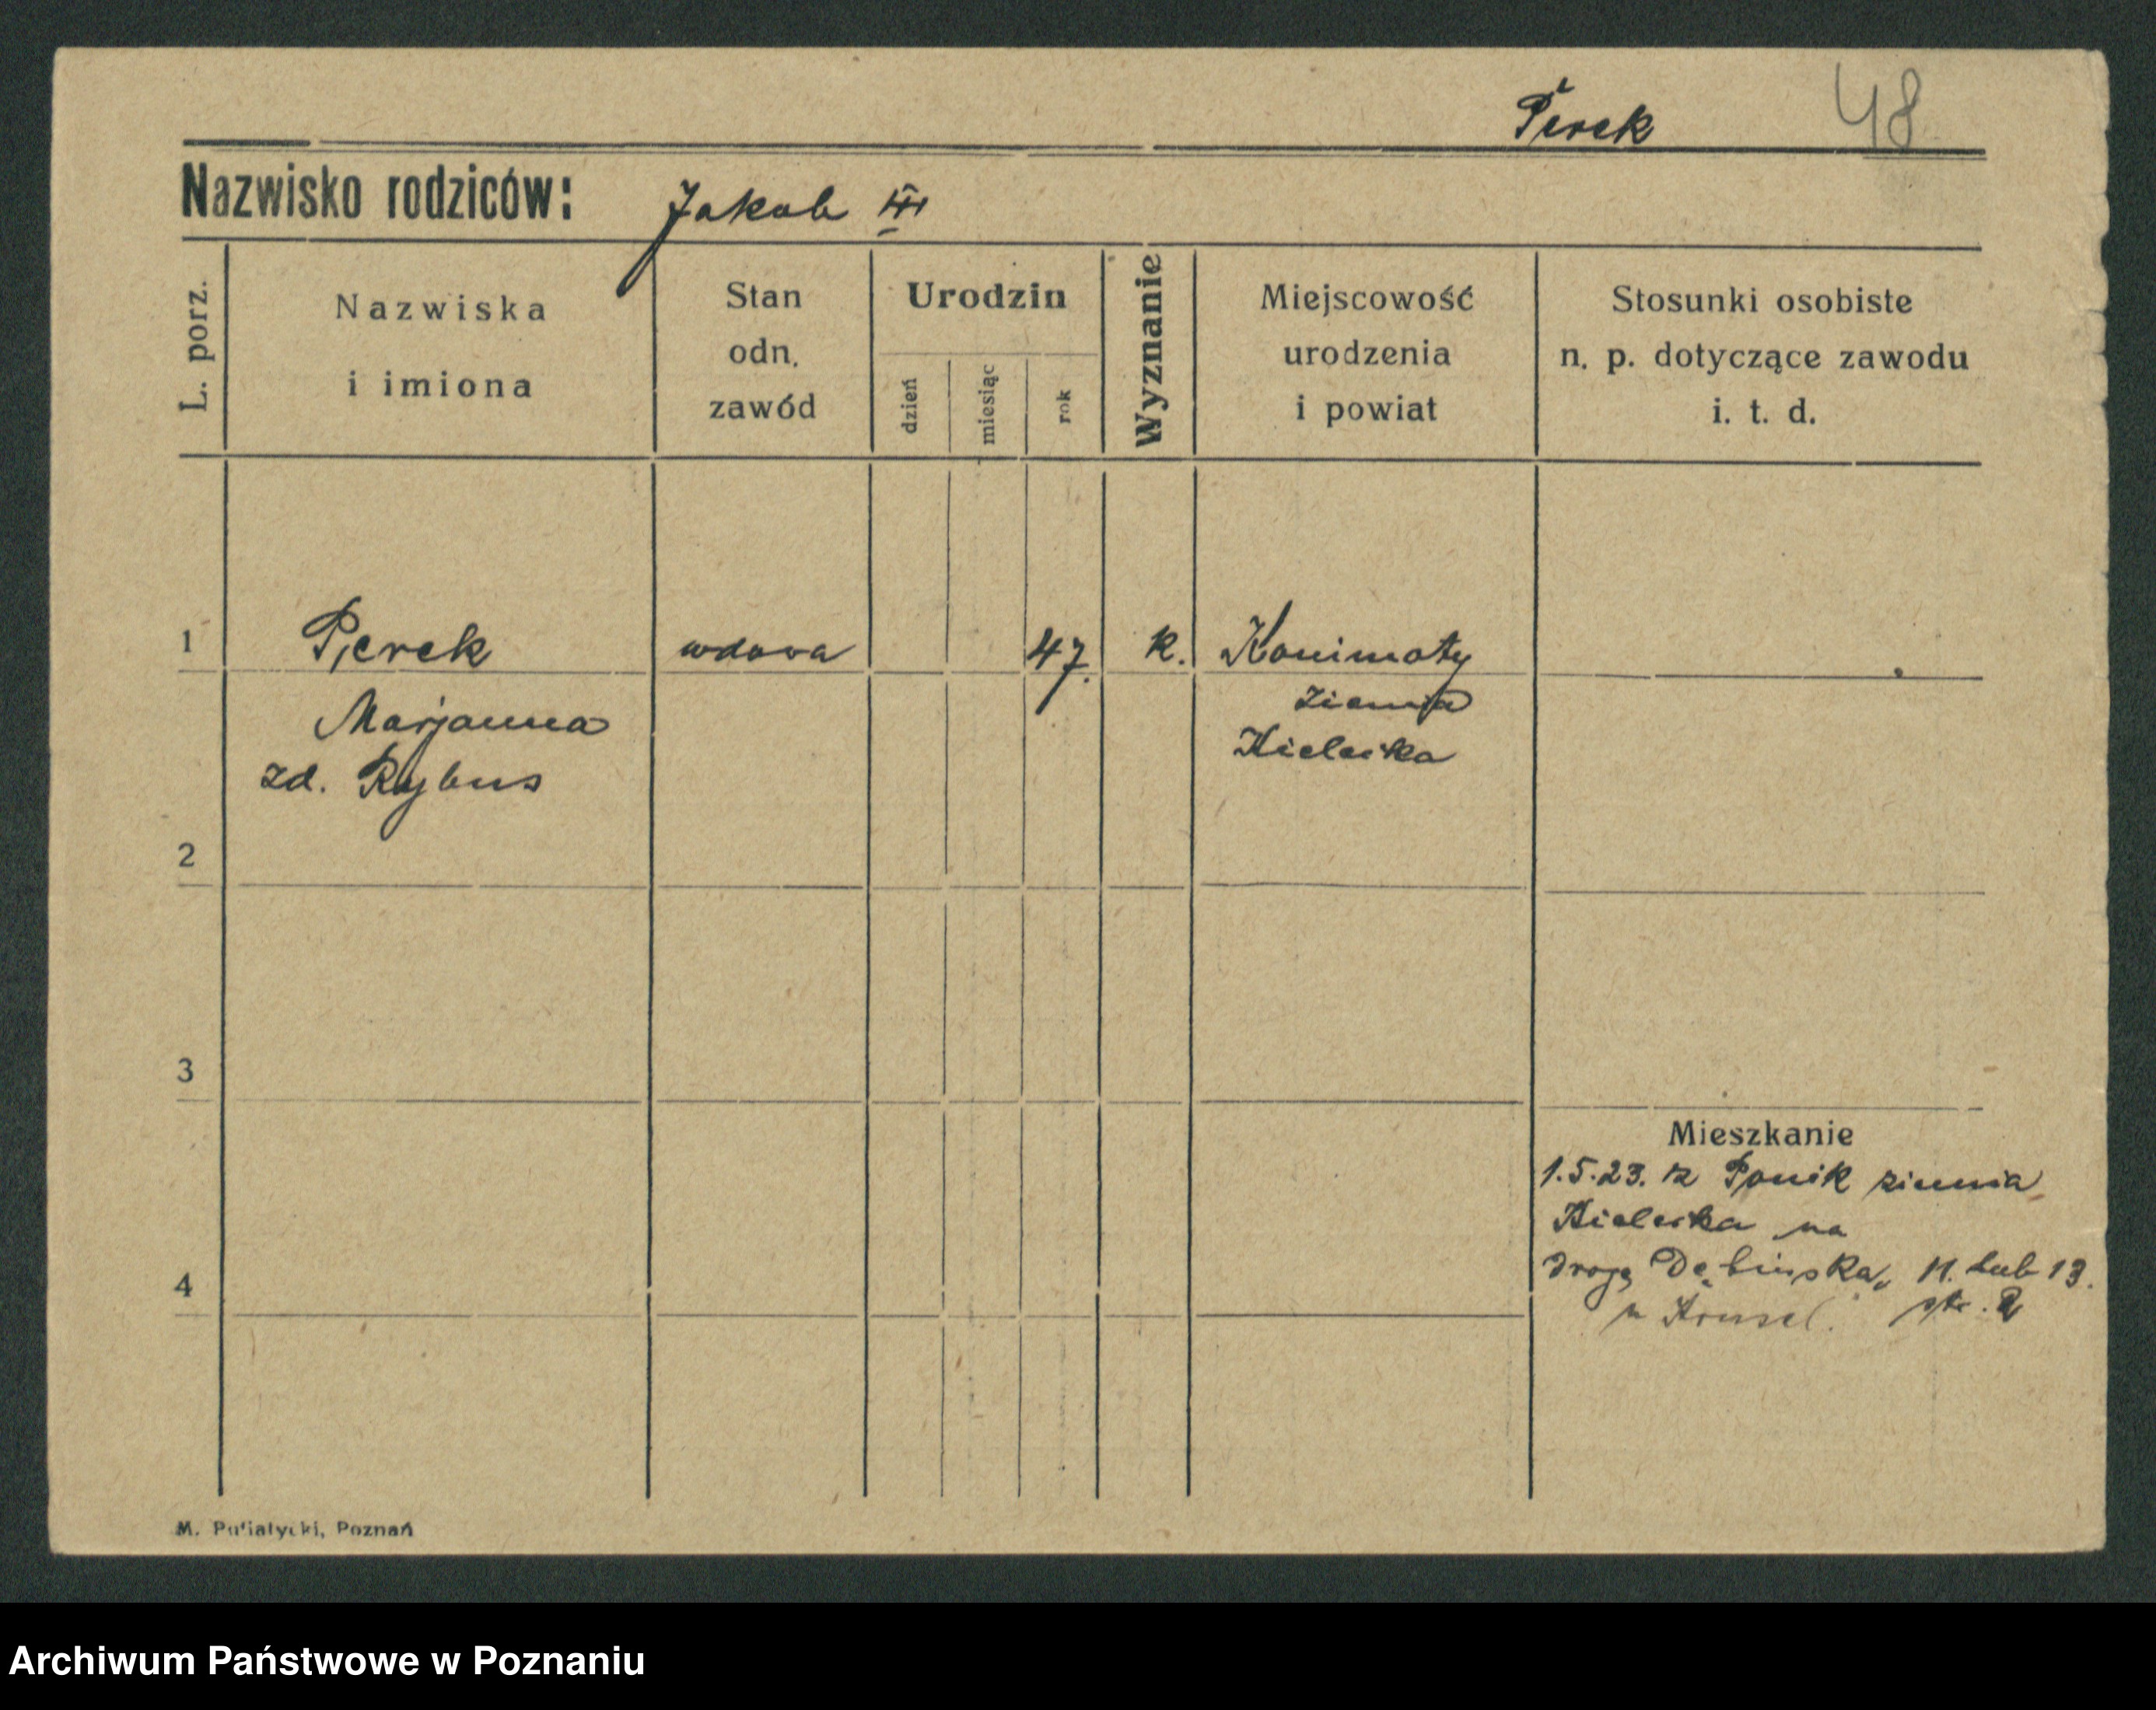 Perek 48
Nazwisko rodziców: Jakob III
L. porz.
Nazwiska
i imiona
Stan
odn.
zawód
Urodzin
dzień
miesiąc
rok
Wyznanie
Miejscowość
urodzenia
i powiat
Stosunki osobiste
n. p. dotyczące zawodu
i. t. d.
1 Perek wdova 47. k. Konimoty
Marjanna ziemia
zd. Rybus Kielecka
2
3
4
Mieszkanie
1.5.23. z Ponik ziemia
Kielecka na
drogę Dębińska, 11. Lub 13.
u str. 2
M. Putiatycki, Poznań
Archiwum Państwowe w Poznaniu